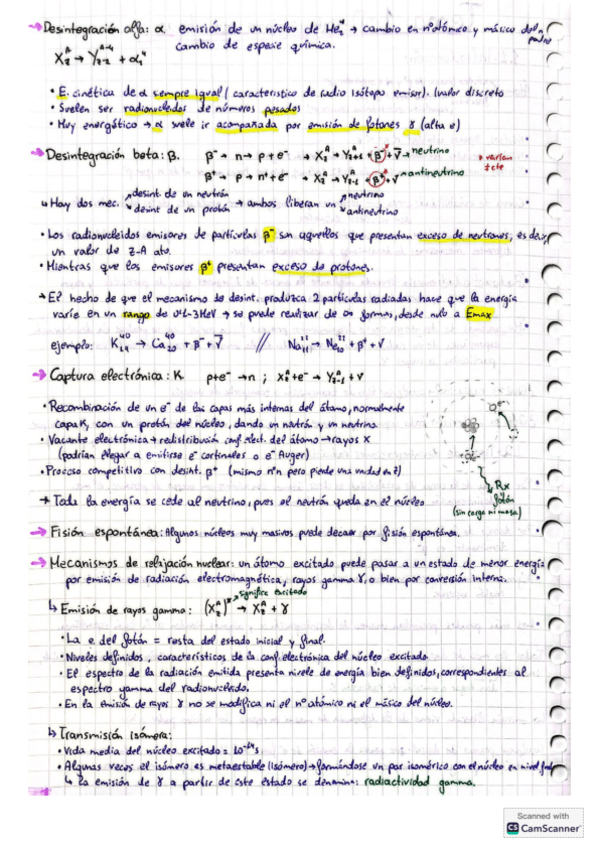 → Desintegración alfa: α emisión de un núcleo de He₂⁴ → cambio en nº atómico y másico del
cambio de especie química.
X_Z^A → Y_{Z-2}^{A-4} + α
• E. cinética de α siempre igual (característico de radio isótopo emisor). (valor discreto
• Suelen ser radionucleidos de números pesados
• Muy energético → α suele ir acompañada por emisión de fotones γ (alta e)
→ Desintegración beta: β. β⁻ → n → p + e⁻ → X_Z^A → Y_{Z+1}^A + β⁻ + ν̄ → neutrino
β⁺ → p → n + e⁺ → X_Z^A → Y_{Z-1}^A + β⁺ + ν → antineutrino
→ varían
↳ Hay dos mec. desint. de un neutrón → ambos liberan un neutrino
desint. de un protón antineutrino
• Los radionucleidos emisores de partículas β⁻ son aquellos que presentan exceso de neutrones, es decir
un valor de Z-A alto.
• Mientras que los emisores β⁺ presentan exceso de protones.
→ El hecho de que el mecanismo de desint. produzca 2 partículas radiadas hace que la energía
varíe en un rango de → se puede realizar de ∞ formas, desde nulo a Emax
ejemplo: K₁₉⁴⁰ → Ca₂₀⁴⁰ + β⁻ + ν̄ // Na₁₁ → Ne₁₀ + β⁺ + ν
→ Captura electrónica: K p + e⁻ → n ; X_Z^A + e⁻ → Y_{Z-1}^A + ν
• Recombinación de un e⁻ de las capas más internas del átomo, normalmente
capa K, con un protón del núcleo, dando un neutrón y un neutrino.
• Vacante electrónica → redistribución conf. elect. del átomo → rayos X
(podrían llegar a emitirse e⁻ corticales o e⁻ Auger)
• Proceso competitivo con desint. β⁺ (mismo nºn pero pierde una unidad en Z)
e⁻
Rx
fotón
(sin carga ni masa)
→ Toda la energía se cede al neutrino, pues el neutrón queda en el núcleo
→ Fisión espontánea: Algunos núcleos muy masivos puede decaer por fisión espontánea.
→ Mecanismos de relajación nuclear: un átomo excitado puede pasar a un estado de menor energía
por emisión de radiación electromagnética, rayos gamma γ, o bien por conversión interna.
significa excitado
↳ Emisión de rayos gamma: (X_Z^A)* → X_Z^A + γ
• La e. del fotón = resta del estado inicial y final.
• Niveles definidos, característicos de la conf. electrónica del núcleo excitado.
• El espectro de la radiación emitida presenta nivele de energía bien definidos, correspondientes al
espectro gamma del radionucleido.
• En la emisión de rayos γ no se modifica ni el nº atómico ni el másico del núcleo.
↳ Transmisión isómera:
• Vida media del núcleo excitado =
• Algunas veces el isómero es metaestable (isómero) → formándose un par isomérico con el núcleo en nivel
↳ la emisión de γ a partir de este estado se denomina: radiactividad gamma.
Scanned with
CS CamScanner